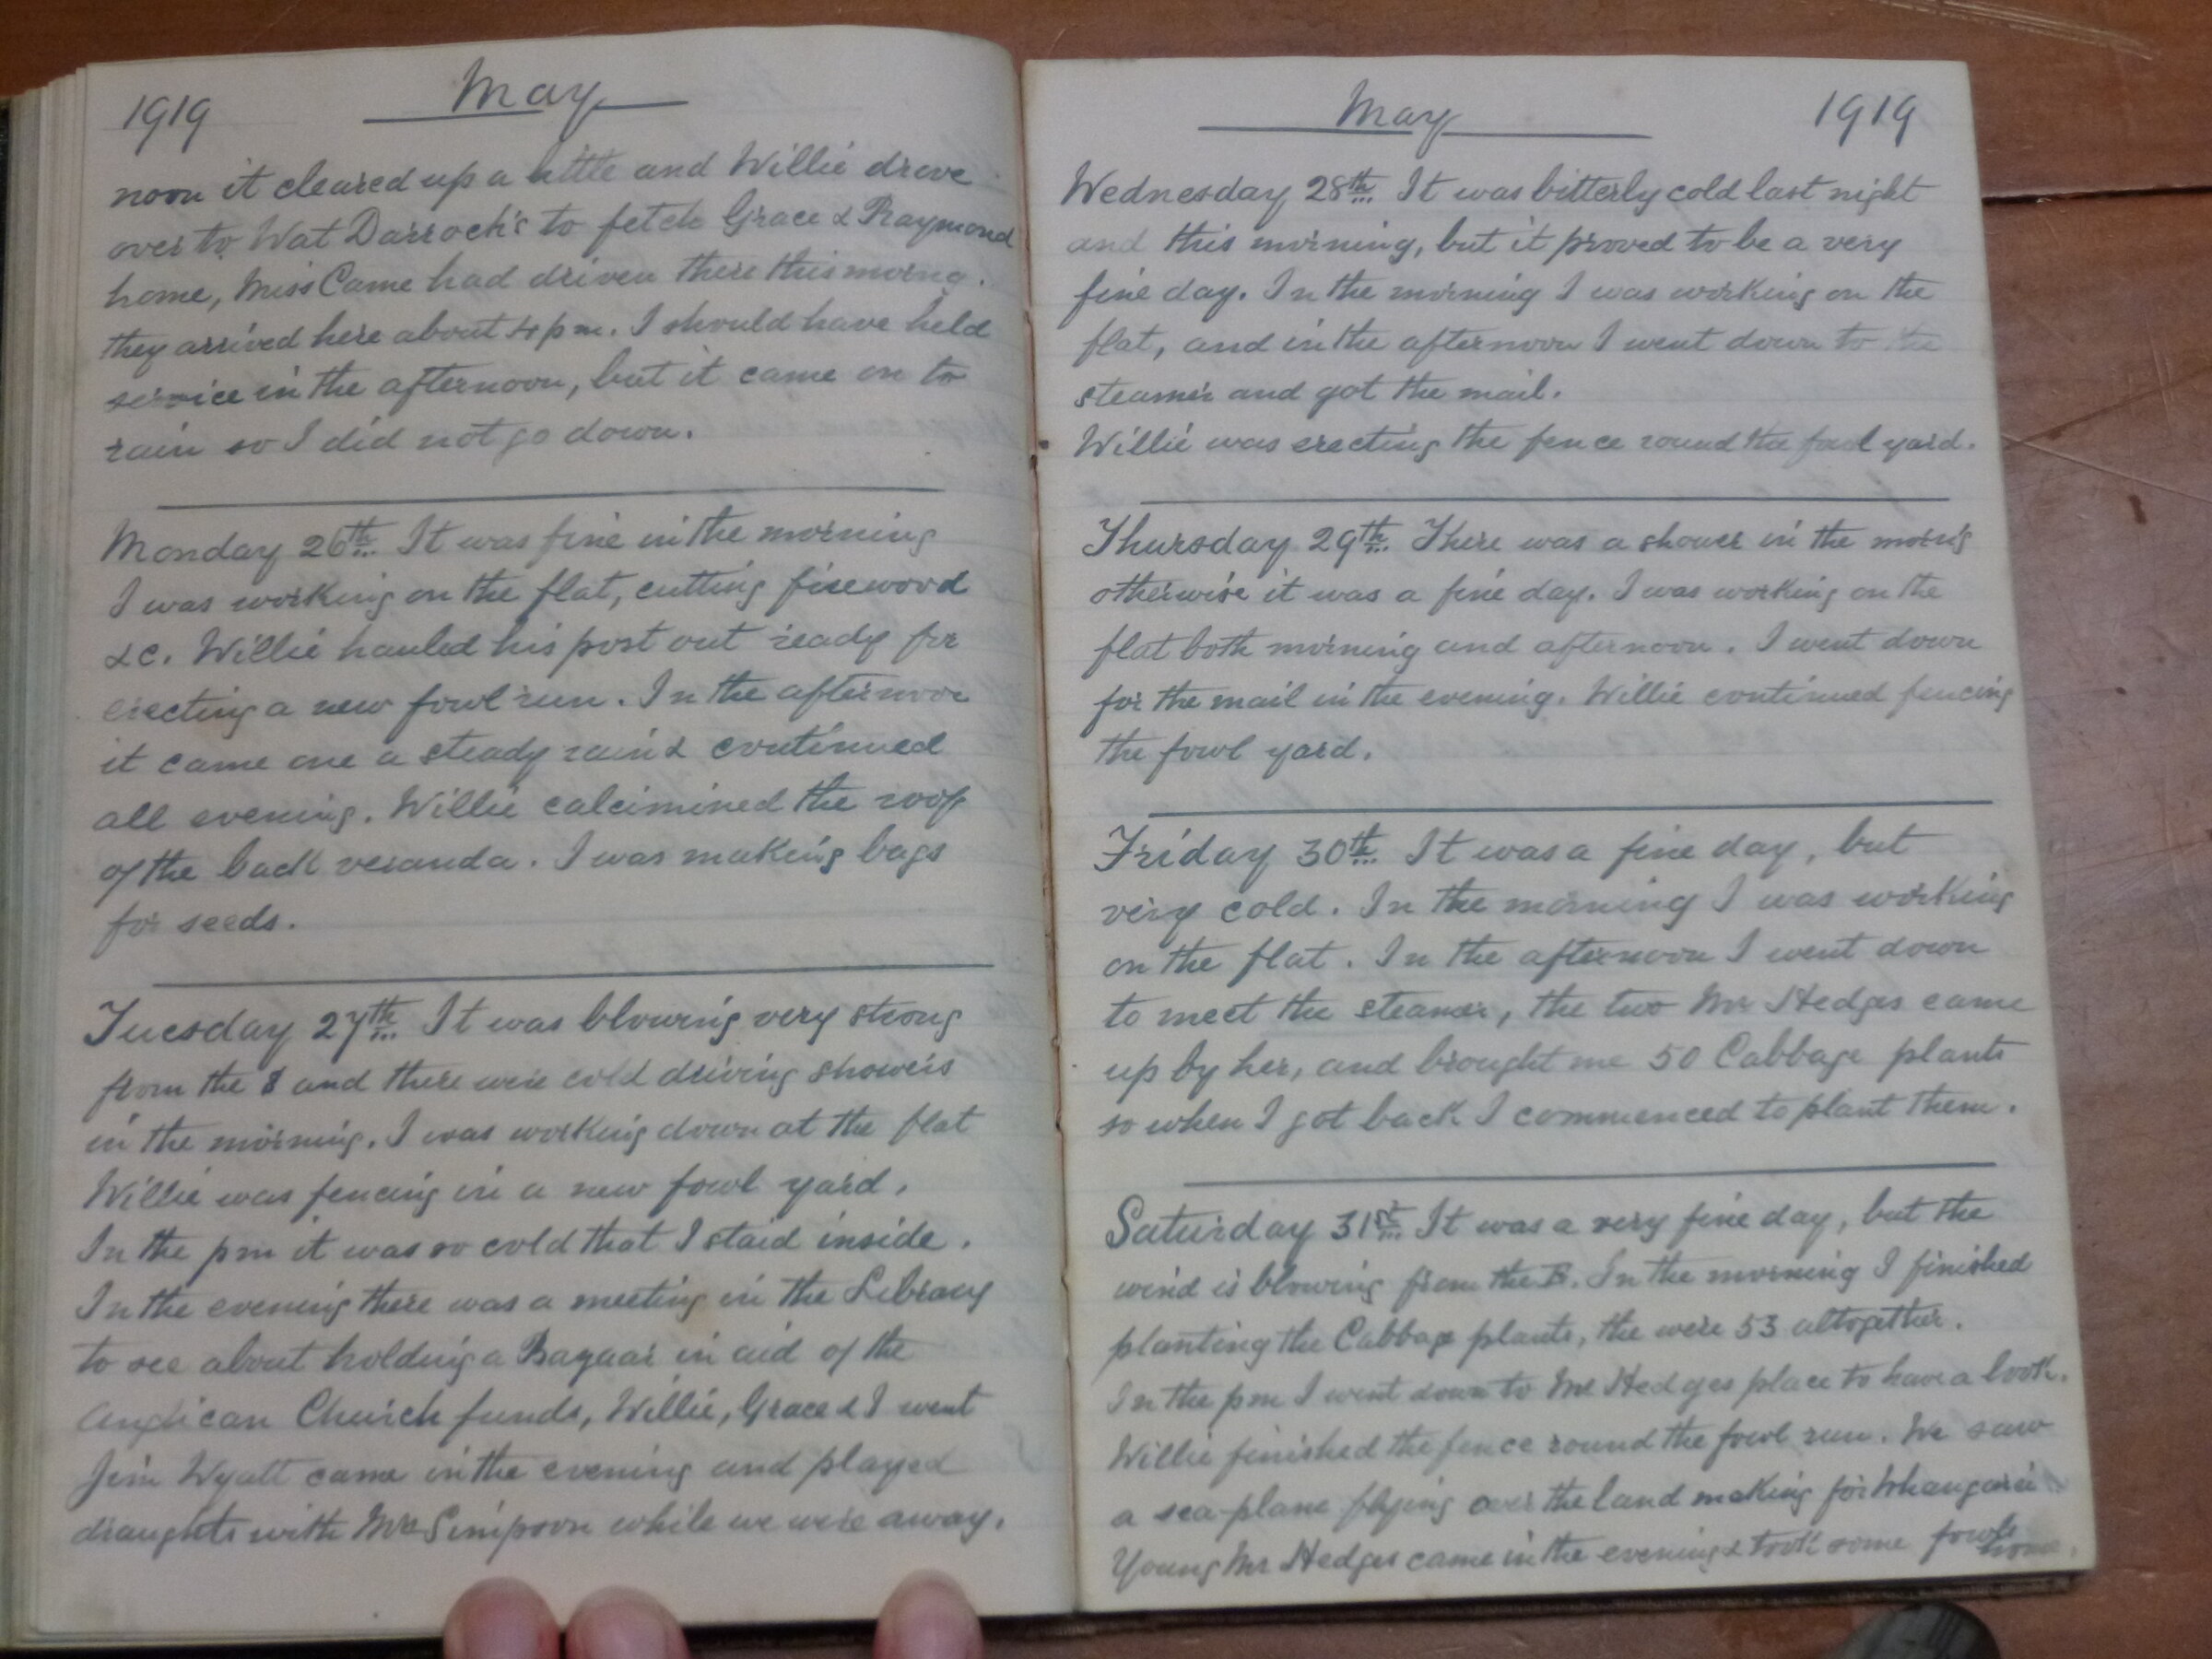 1919 May
noon it cleared up a little and Willie drove
over to Wat Darroch's to fetch Grace & Raymond
home, Miss Came had driven there this morng.
they arrived here about 4 pm. I should have held
service in the afternoon, but it came on to
rain so I did not go down.
Monday 26th It was fine in the morning
I was working on the flat, cutting firewood
&c. Willie hauled his post out ready for
erecting a new fowl run. In the afternoon
it came one a steady rain & continued
all evening. Willie calcimined the roof
of the back veranda. I was making bags
for seeds.
Tuesday 27th It was blowing very strong
from the S and there were cold driving showers
in the morning. I was working down at the flat
Willie was fencing in a new fowl yard.
In the pm it was so cold that I staid inside.
In the evening there was a meeting in the Library
to see about holding a Bazaar in aid of the
Anglican Church funds, Willie, Grace & I went
Jim Wyatt came in the evening and played
draughts with Mrs Simpson while we were away.
May 1919
Wednesday 28th It was bitterly cold last night
and this morning, but it proved to be a very
fine day. In the morning I was working on the
flat, and in the afternoon I went down to the
steamer and got the mail.
Willie was erecting the fence round the fowl yard.
Thursday 29th There was a shower in the morng
otherwise it was a fine day. I was working on the
flat both morning and afternoon. I went down
for the mail in the evening. Willie continued fencing
the fowl yard.
Friday 30th It was a fine day, but
very cold. In the morning I was working
on the flat. In the afternoon I went down
to meet the steamer, the two Mr Hedges came
up by her, and brought me 50 Cabbage plants
so when I got back I commenced to plant them.
Saturday 31st It was a very fine day, but the
wind is blowing from the . In the morning I finished
planting the Cabbage plants, the were 53 altogether.
In the pm I went down to Mr Hedges place to have a look.
Willie finished the fence round the fowl run. We saw
a sea-plane flying over the land making for Whangarei
Young Mr Hedges came in the evening & took some fowls
home.